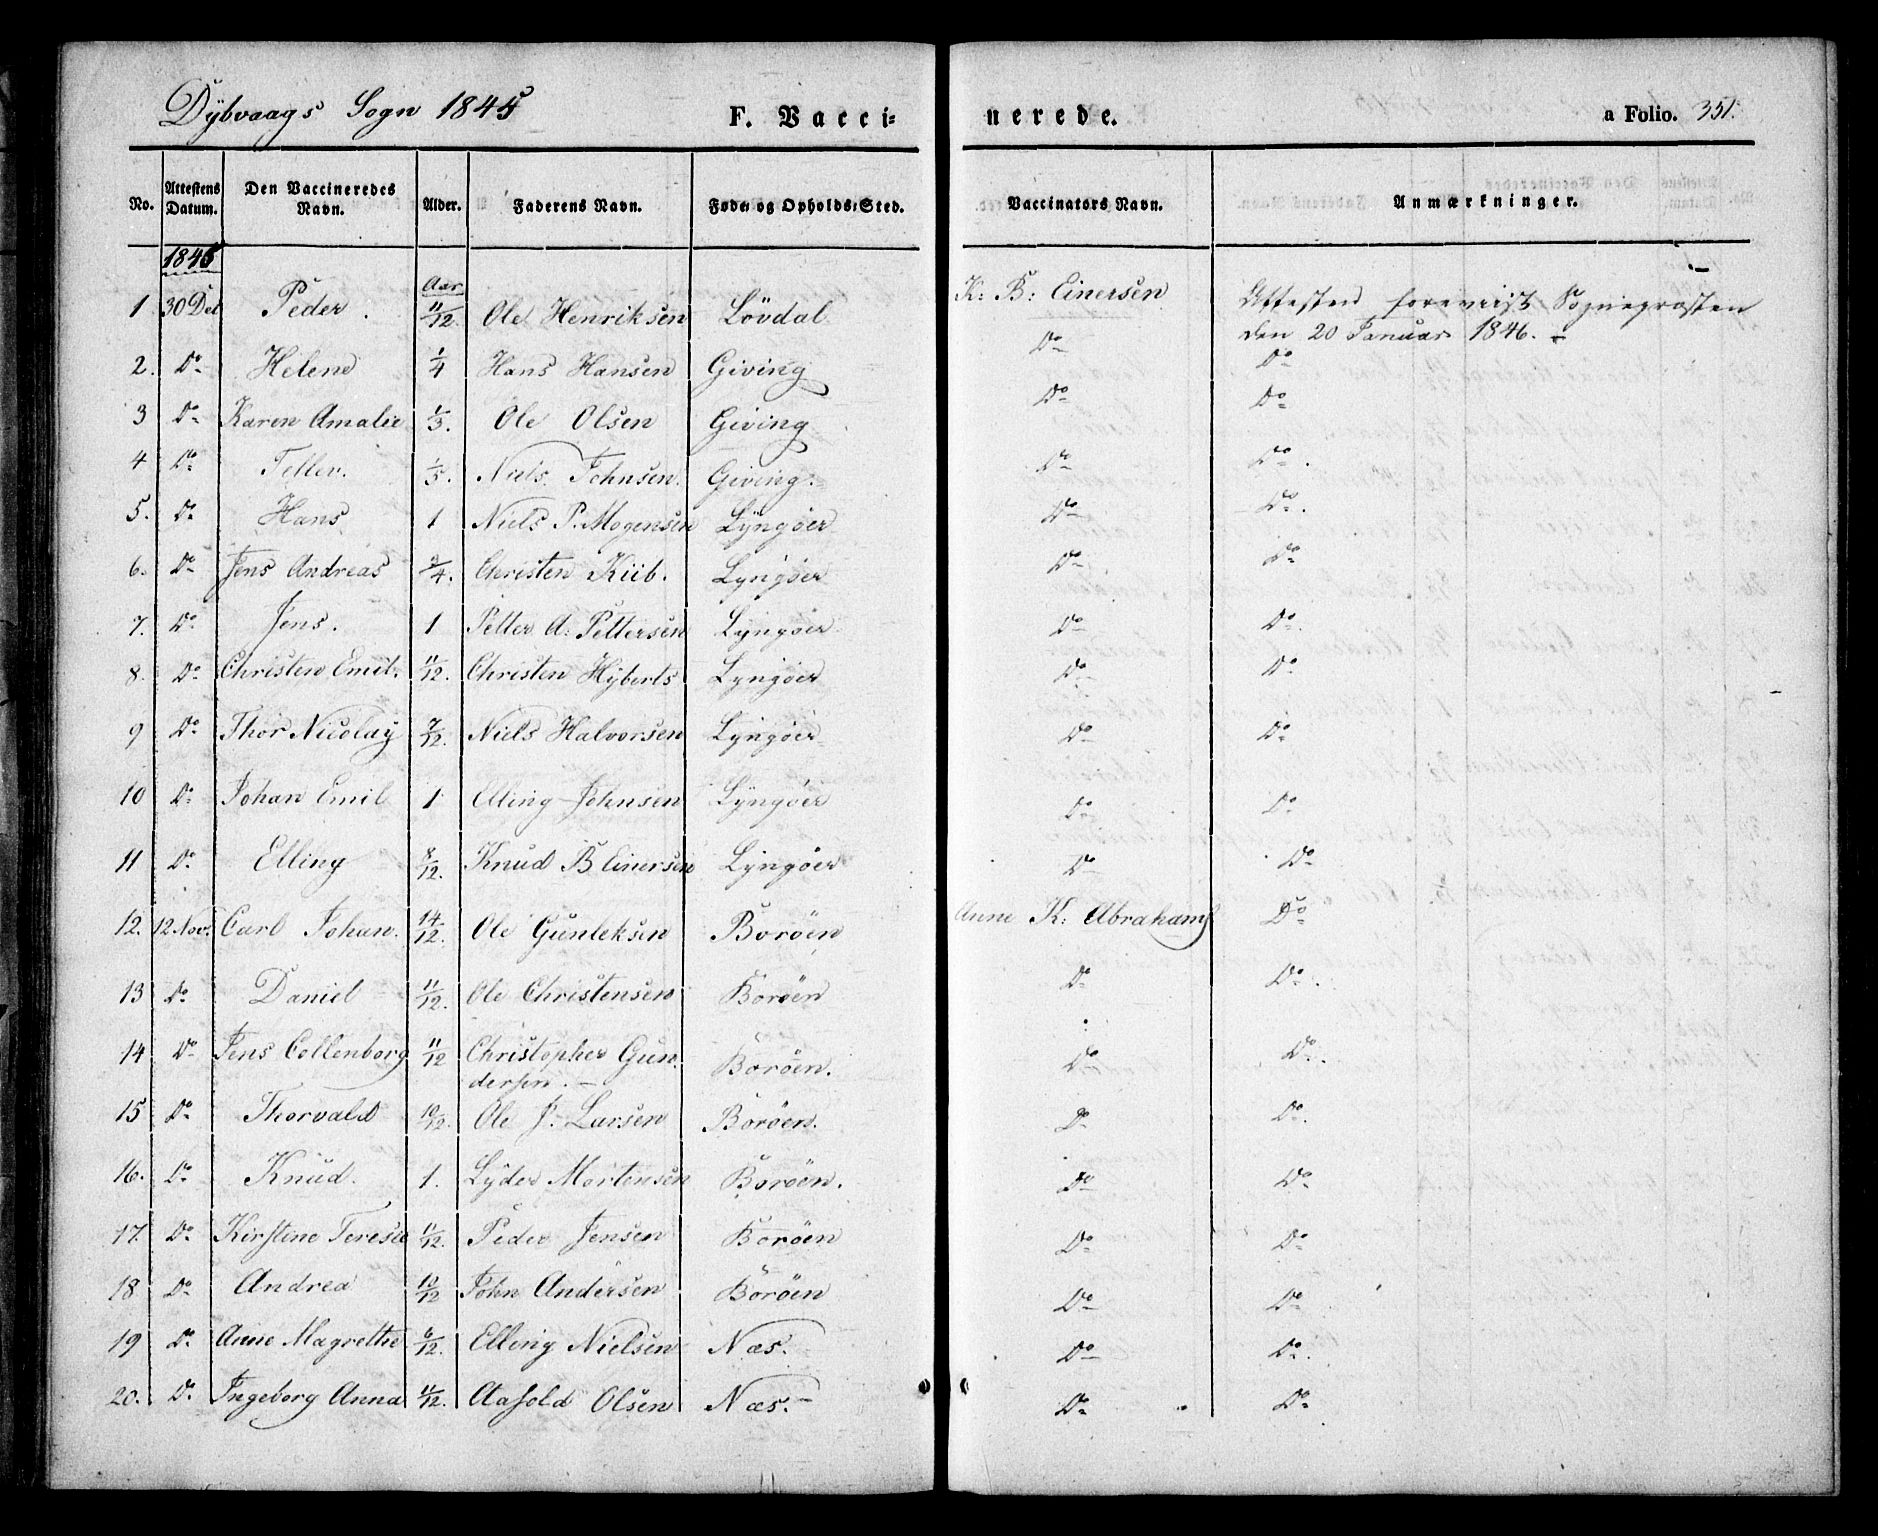 Dybvaags Sogn 1845 F. Vaccinerede. a Folio. 351.
No. Attestens Datum. Den Vaccineredes Navn. Alder. Faderens Navn. Føde og Opholds-Sted. Vaccinators Navn. Anmærkninger.
1845 Aar
1 30 Det Peder. 11/12. Ole Henriksen Lövdal K: B: Einersen Attesten foreviist Sogneprosten
den 20 Januar 1846. -
2. Do Helene 1/4 Hans Hansen Giving Do Do
3 Do Karen Amalie 1/3. Ole Olsen Giving Do Do
4 Do Tellev. 1/5. Niels Johnsen. Giving. Do Do.
5. Do Hans 1 Niels P. Mogensen Lyngöer Do Do.
6. Do Jens Andreas 3/4. Christen Kiib. Lyngöer Do Do
7. Do Jens. 1 Petter A: Pettersen Lyngöer Do Do.
8. Do Christen Emil. 11/12. Christen Hyberts Lyngöer Do Do
9 Do Thor Nicolay 7/12. Niels Halvorsen Lyngöer Do Do
10 Do Johan Emil 1 Elling Johnsen Lyngöer Do Do
11 Do Elling 8/12. Knud B Einersen Lyngöer Do Do
12. 12 Nov. Carl Johan. 14/12. Ole Gunleksen Boröen Anne K: Abrahams Do
13 Do Daniel 11/12. Ole Christensen Boröen Do Do.
14 Do Jens Collenborg 11/12 Christopher Gun-
dersen. - Boröen. Do Do.
15 Do Thorvald 10/12. Ole J. Larsen Boröen. Do Do.
16. Do Knud. 1. Lyder Mortensen Boröen. Do Do
17. Do Kirstine Teresie 11/12. Peder Jensen Boröen Do Do
18 Do Andrea 10/12 John Andersen Boröen Do Do
19 Do Anne Magrethe 6/12. Elling Nielsen Næs. Do Do.
20. Do Ingeborg Anna 11/12. Aasold Olsen Næs. - Do Do